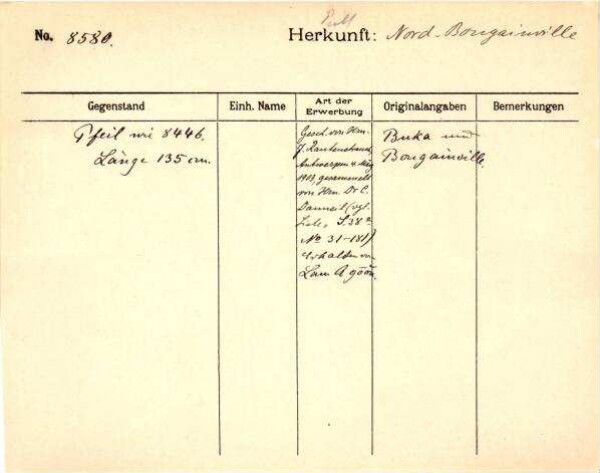 No. 8580.
Herkunft: Nord-Bougainville
Gegenstand
Einh. Name
Art der Erwerbung
Originalangaben
Bemerkungen
Pfeil wie 8446.
Länge 135 cm.
Gesch. von Hrn.
J. Rautenstrauch,
Antwerpen
1903, gesammelt
von Hrn. Dr. C.
Danneil (vgl.
Liste, S. 38
No 31-181)
erhalten von
Buka und
Bougainville.